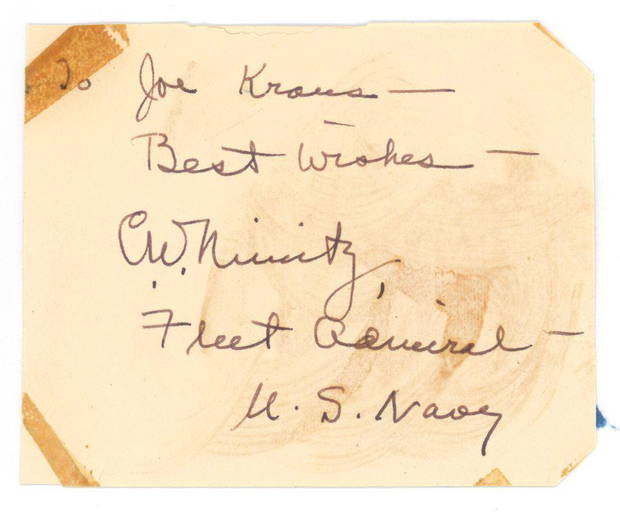 To Joe Kraus —
Best Wishes —
C.W. Nimitz,
Fleet Admiral —
U. S. Navy